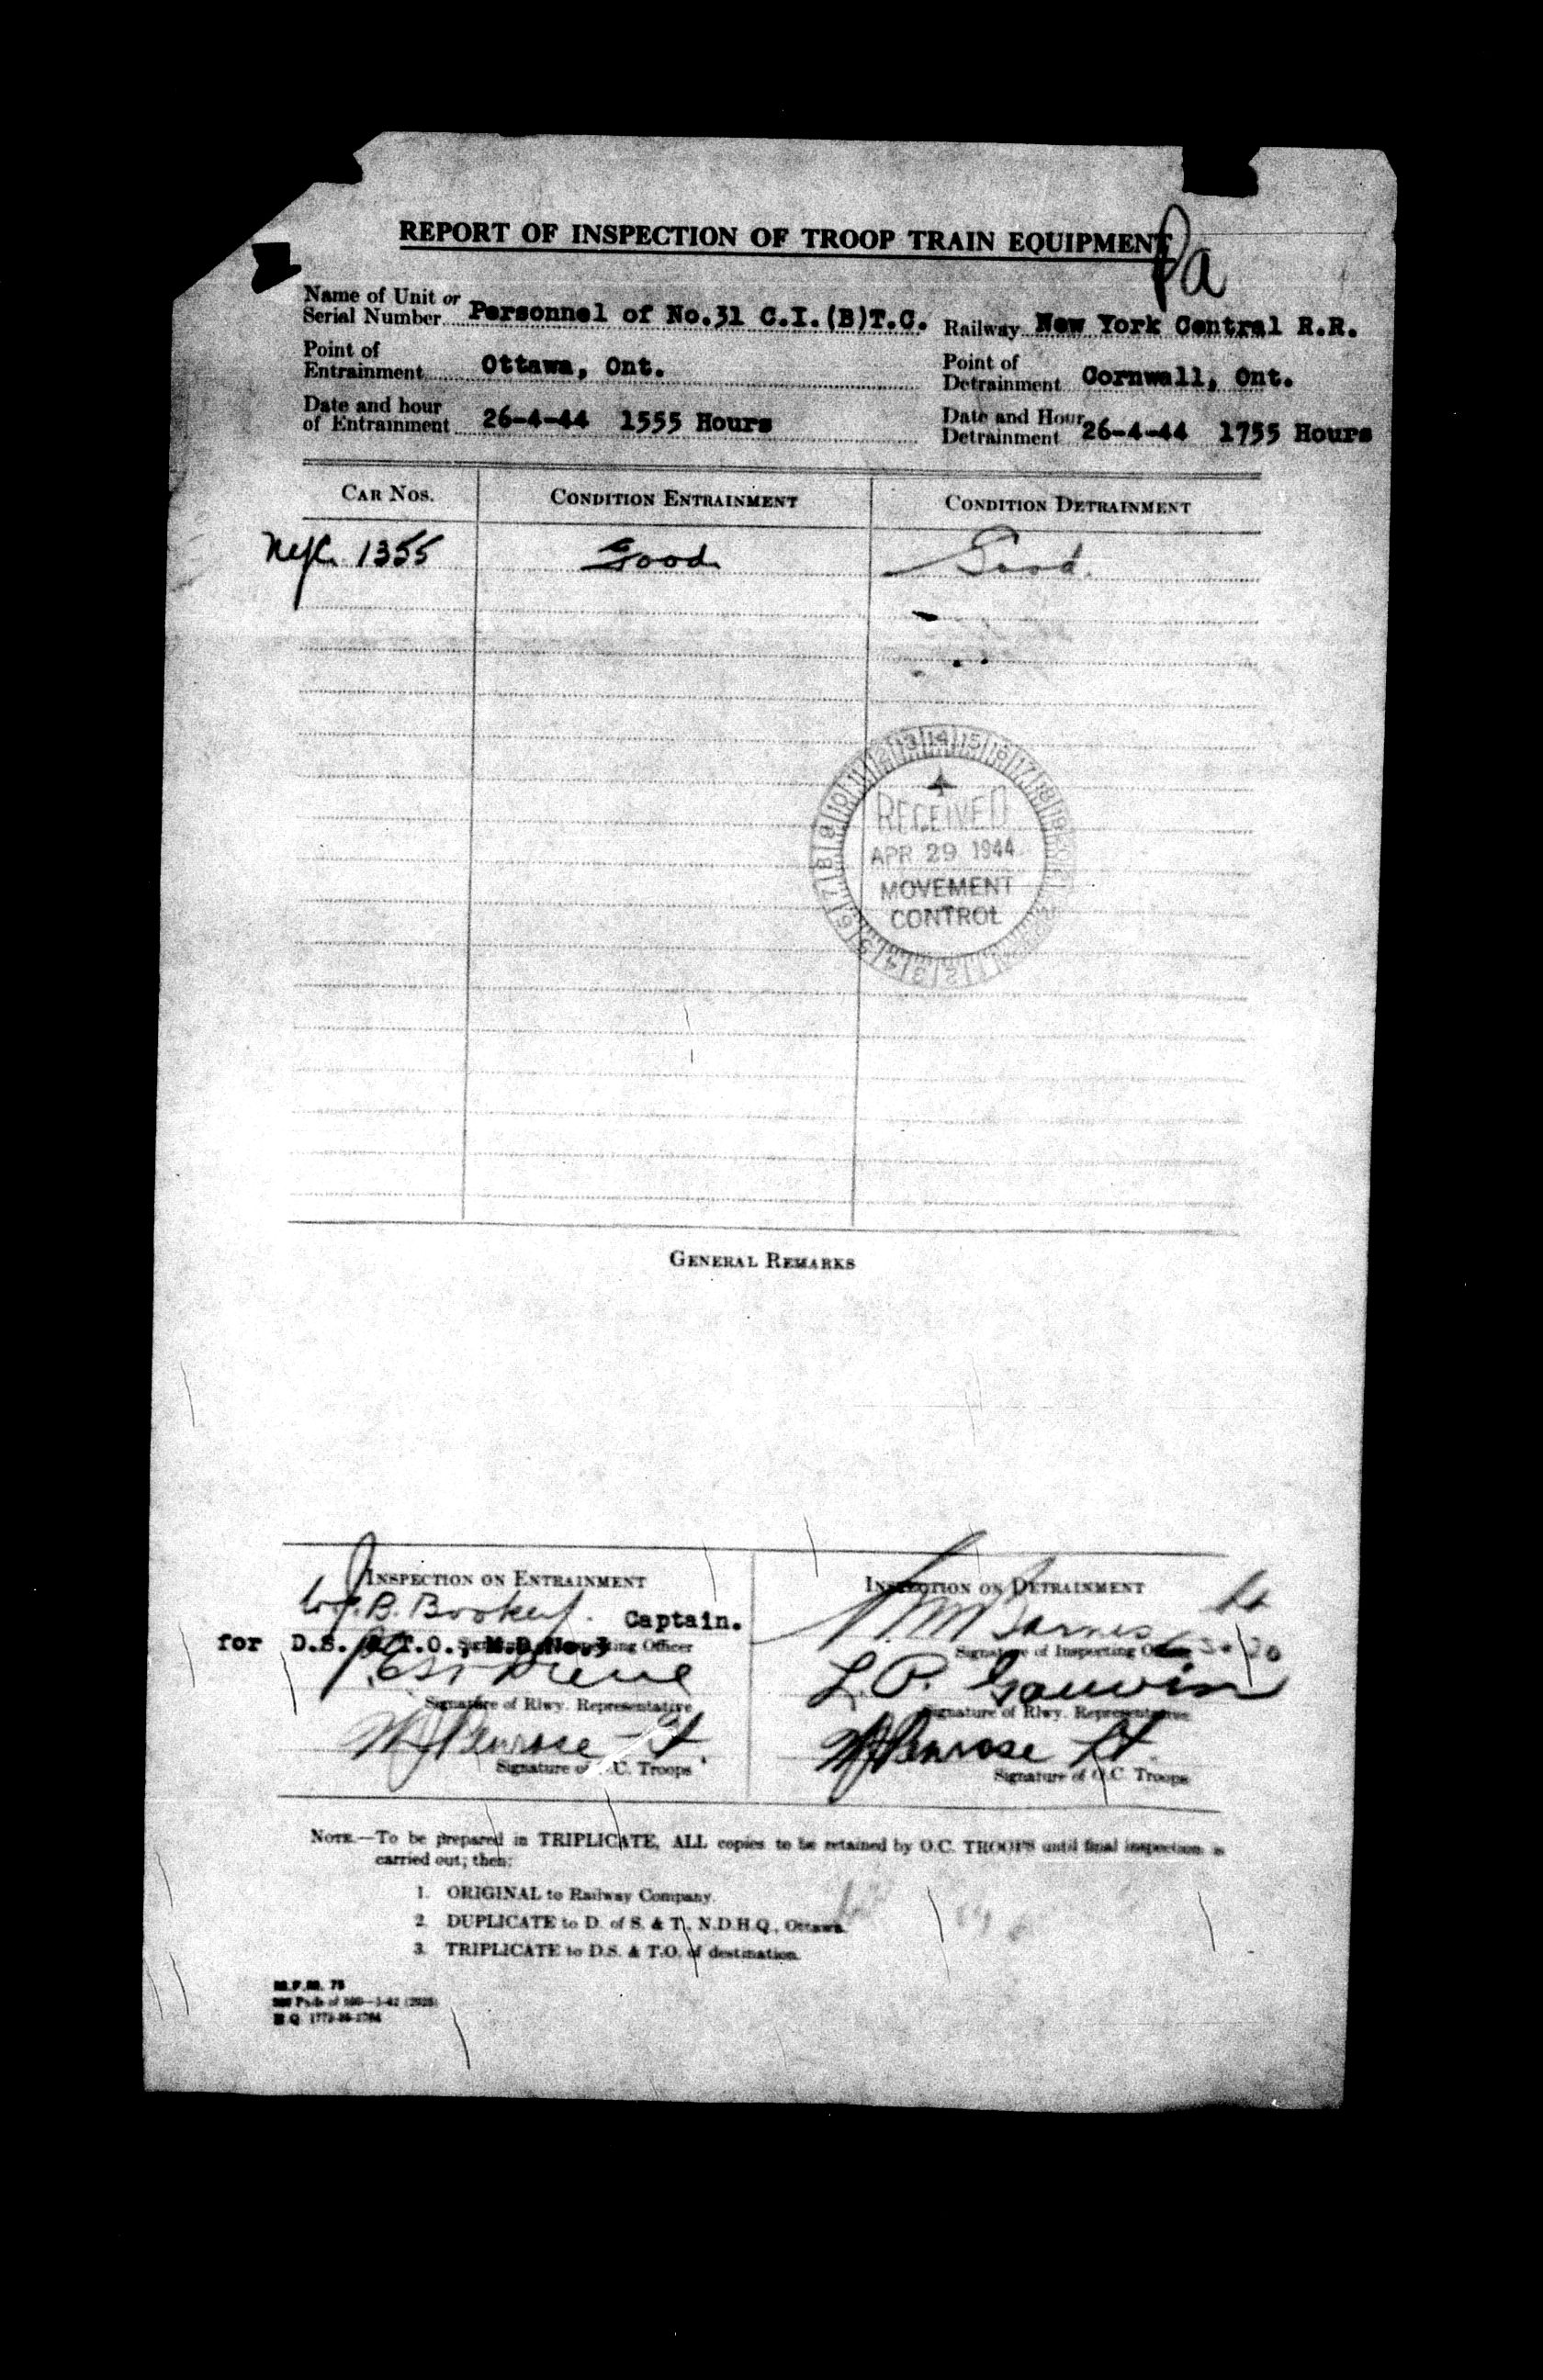 REPORT OF INSPECTION OF TROOP TRAIN EQUIPMENT
Pa
Name of Unit or
Serial Number Personnel of No.31 C.I.(B)T.C. Railway New York Central R.R.
Point of
Entrainment Ottawa, Ont.
Point of
Detrainment Cornwall, Ont.
Date and hour
of Entrainment 26-4-44 1555 Hours
Date and Hour
Detrainment 26-4-44 1755 Hours
CAR NOS. CONDITION ENTRAINMENT CONDITION DETRAINMENT
NYC. 1355 Good Good.
RECEIVED
APR 29 1944
MOVEMENT
CONTROL
GENERAL REMARKS
INSPECTION ON ENTRAINMENT
B. Booker Captain.
for D.S. & T.O., M.D. No.3
Signature of Rlwy. Representative
Penrose Lt.
Signature of O.C. Troops
INSPECTION ON DETRAINMENT
Barnes
Signature of Inspecting Officer
L.P. Gauvin
Signature of Rlwy. Representative
Penrose Lt.
Signature of O.C. Troops
NOTE.—To be prepared in TRIPLICATE, ALL copies to be retained by O.C. TROOPS until final inspection is
carried out; then:
1. ORIGINAL to Railway Company.
2. DUPLICATE to D. of S. & T., N.D.H.Q., Ottawa.
3. TRIPLICATE to D.S. & T.O. of destination.
M.F.M. 75